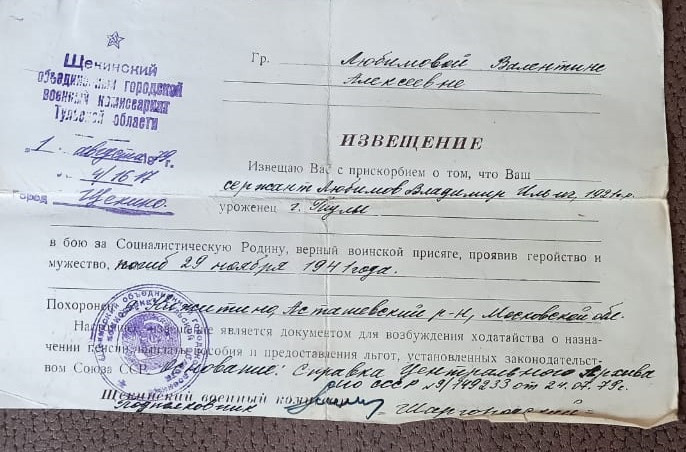 Щекинский
объединенный городской
военный комиссариат
Тульской области
"1" августа 1979 г.
№ 4/1617
Город Щекино.
Гр. Любимовой Валентине
Алексеевне
ИЗВЕЩЕНИЕ
Извещаю Вас с прискорбием о том, что Ваш
сержант Любимов Владимир Ильич, 1921 г.р.
уроженец г. Тулы
в бою за Социалистическую Родину, верный воинской присяге, проявив геройство и
мужество, погиб 29 ноября 1941 года.
Похоронен Асташевский р-н, Московской обл.
Настоящее извещение является документом для возбуждения ходатайства о назна-
чении пенсии, выплаты пособия и предоставления льгот, установленных законодательст-
вом Союза ССР. Основание: Справка Центрального Архива
СССР № 9/149233 от 24.07.79г.
Щекинский военный
Подполковник